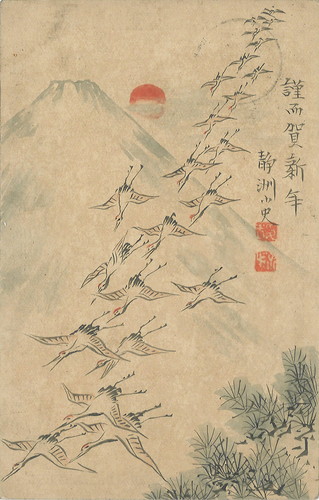 謹而賀新年
静洲小史